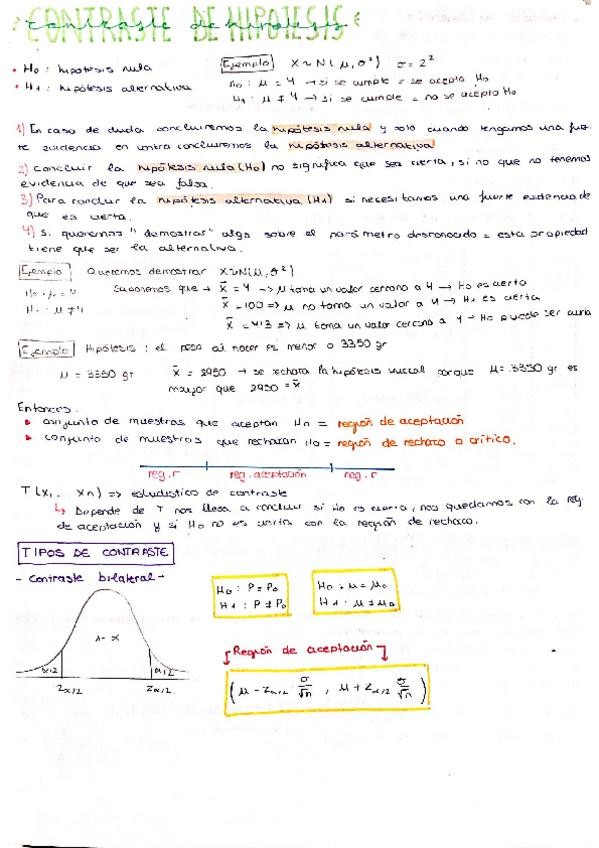 CONTRASTE DE HIPOTESIS
contraste de hipotesis
• H0 : hipótesis nula
Ejemplo X~N(μ, σ²) σ = 2²
• H1 : hipótesis alternativa
H0 : μ = 4 → si se cumple = se acepta H0
H1 : μ ≠ 4 → si se cumple = no se acepta H0
1) En caso de duda concluiremos la hipótesis nula y solo cuando tengamos una fuer
te evidencia en contra concluiremos la hipótesis alternativa
2) concluir la hipótesis nula (H0) no significa que sea cierta, si no que no tenemos
evidencia de que sea falsa.
3) Para concluir la hipótesis alternativa (H1) si necesitamos una fuerte evidencia de
que es cierta.
4) si queremos "demostrar" algo sobre el parámetro desconocido = esta propiedad
tiene que ser la alternativa.
Ejemplo Queremos demostrar X~N(μ, σ²)
H0 : μ = 4 Suponemos que → x̄ = 4 → μ toma un valor cercano a 4 → H0 es cierta
H1 : μ ≠ 4 x̄ = 100 => μ no toma un valor a 4 → H1 es cierta
x̄ = 4'13 => μ toma un valor cercano a 4 → H0 puede ser cierta
Ejemplo Hipótesis : el peso al nacer es menor o 3350 gr
μ = 3350 gr x̄ = 2950 → se rechaza la hipótesis inicial porque μ = 3350 gr es
mayor que 2950 = x̄
Entonces
▸ conjunto de muestras que aceptan H0 = región de aceptación
▸ conjunto de muestras que rechazan H0 = región de rechazo o crítico.
reg. r reg. aceptación reg. r
T (x1 ... xn) => estadístico de contraste
↳ Depende de T nos lleva a concluir si H0 es cierta, nos quedamos con la reg
de aceptación y si H0 no es cierta con la región de rechazo.
TIPOS DE CONTRASTE
- Contraste bilateral -
H0 : P = P0
H1 : P ≠ P0
H0 : μ = μ0
H1 : μ ≠ μ0
1 - α
α/2 α/2
Zα/2 Zα/2
Región de aceptación
(μ - Zα/2 σ/√n , μ + Zα/2 σ/√n)